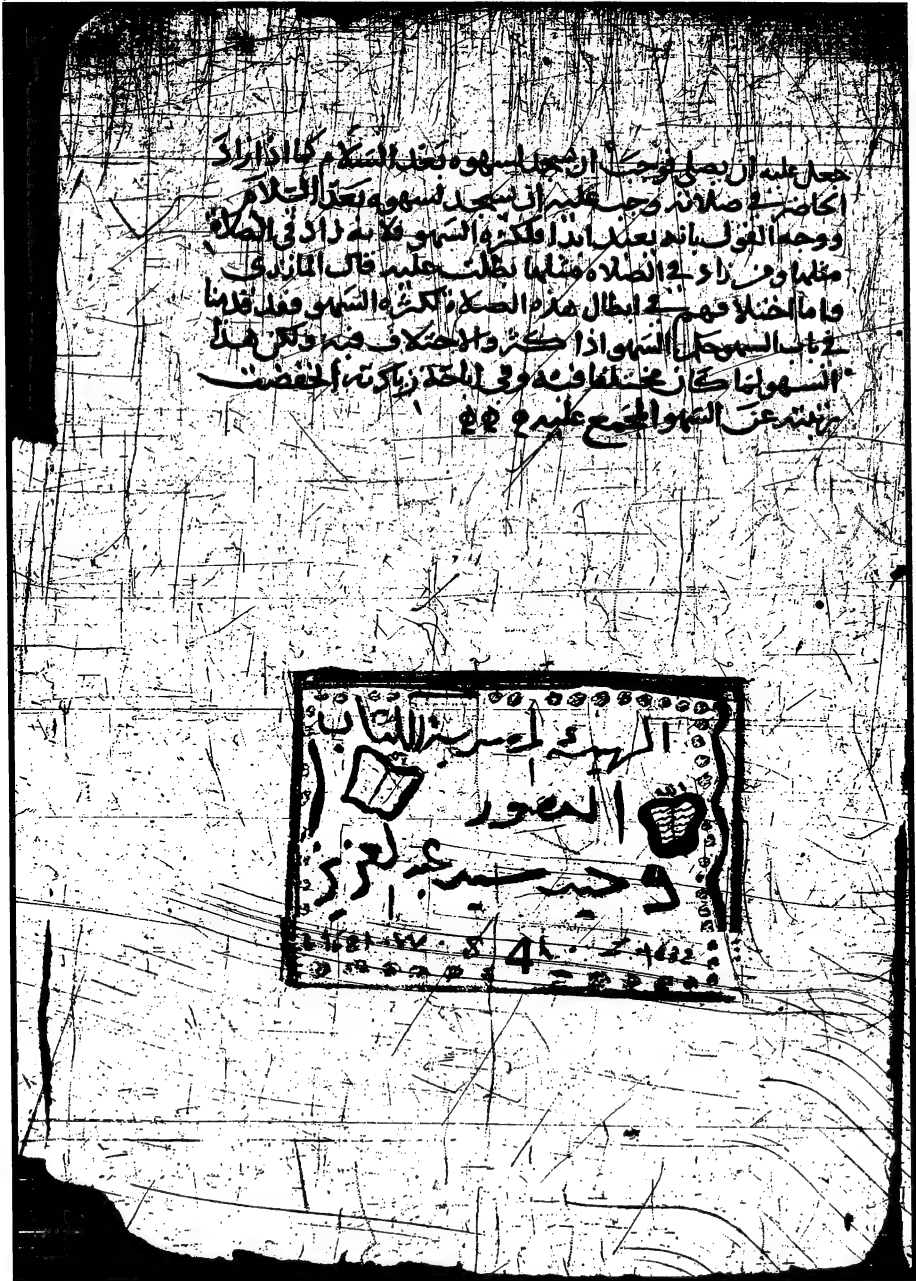 جعل عليه ان يصلي فوجب ان يسجد لسهوه بعد السلام كما اذا زاد
الحاضر في صلاته وجب عليه ان يسجد لسهوه بعد السلام
ووجه القول بانه يعيد ابدا فلكثرة السهو فلانه زاد في الصلاة
مثلها ومن زاد في الصلاه مثلها بطلت عليه قال المازري
واما اختلافهم في ابطال هذه الصلاة لكثره السهو فقد قدمنا
في باب السهو حكم السهو اذا كثر والاختلاف فيه ولكن هذا
السهو لما كان مختلفا فيه وفي اباحة زيادته انخفضت
مرتبته عن السهو المجمع عليه
الهيئة المصرية للكتاب
المصور
وحيد سيد عبد العزيز